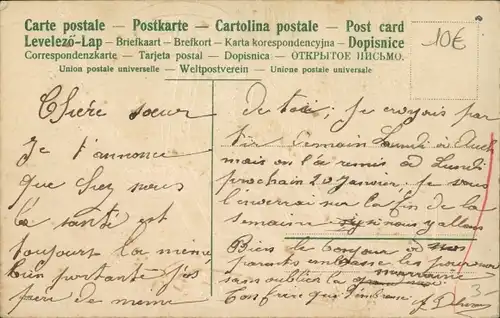 Carte postale — Postkarte — Cartolina postale — Post card
Levelező-Lap — Briefkaart — Brefkort — Karta korespondencyjna — Dopisnice
Correspondenzkarte — Tarjeta postal — Dopisnica — ОТКРЫТОЕ ПИСЬМО.
Union postale universelle — Weltpostverein — Unione postale universale
10€
Chère soeur
Je t'annonce
que chez nous
la santé est
toujours la même
bien portante
faire de même
de toi; je croyais par
tir demain Lundi à
mais on l'a remis à Lundi
prochain 20 Janvier, je vous
l'inverrai sur la fin de la
semaine si nous y allons
Bien le bonjour à
parents embrasse les pour moi
sans oublier la marraine
Ton frère qui t'embrasse
3